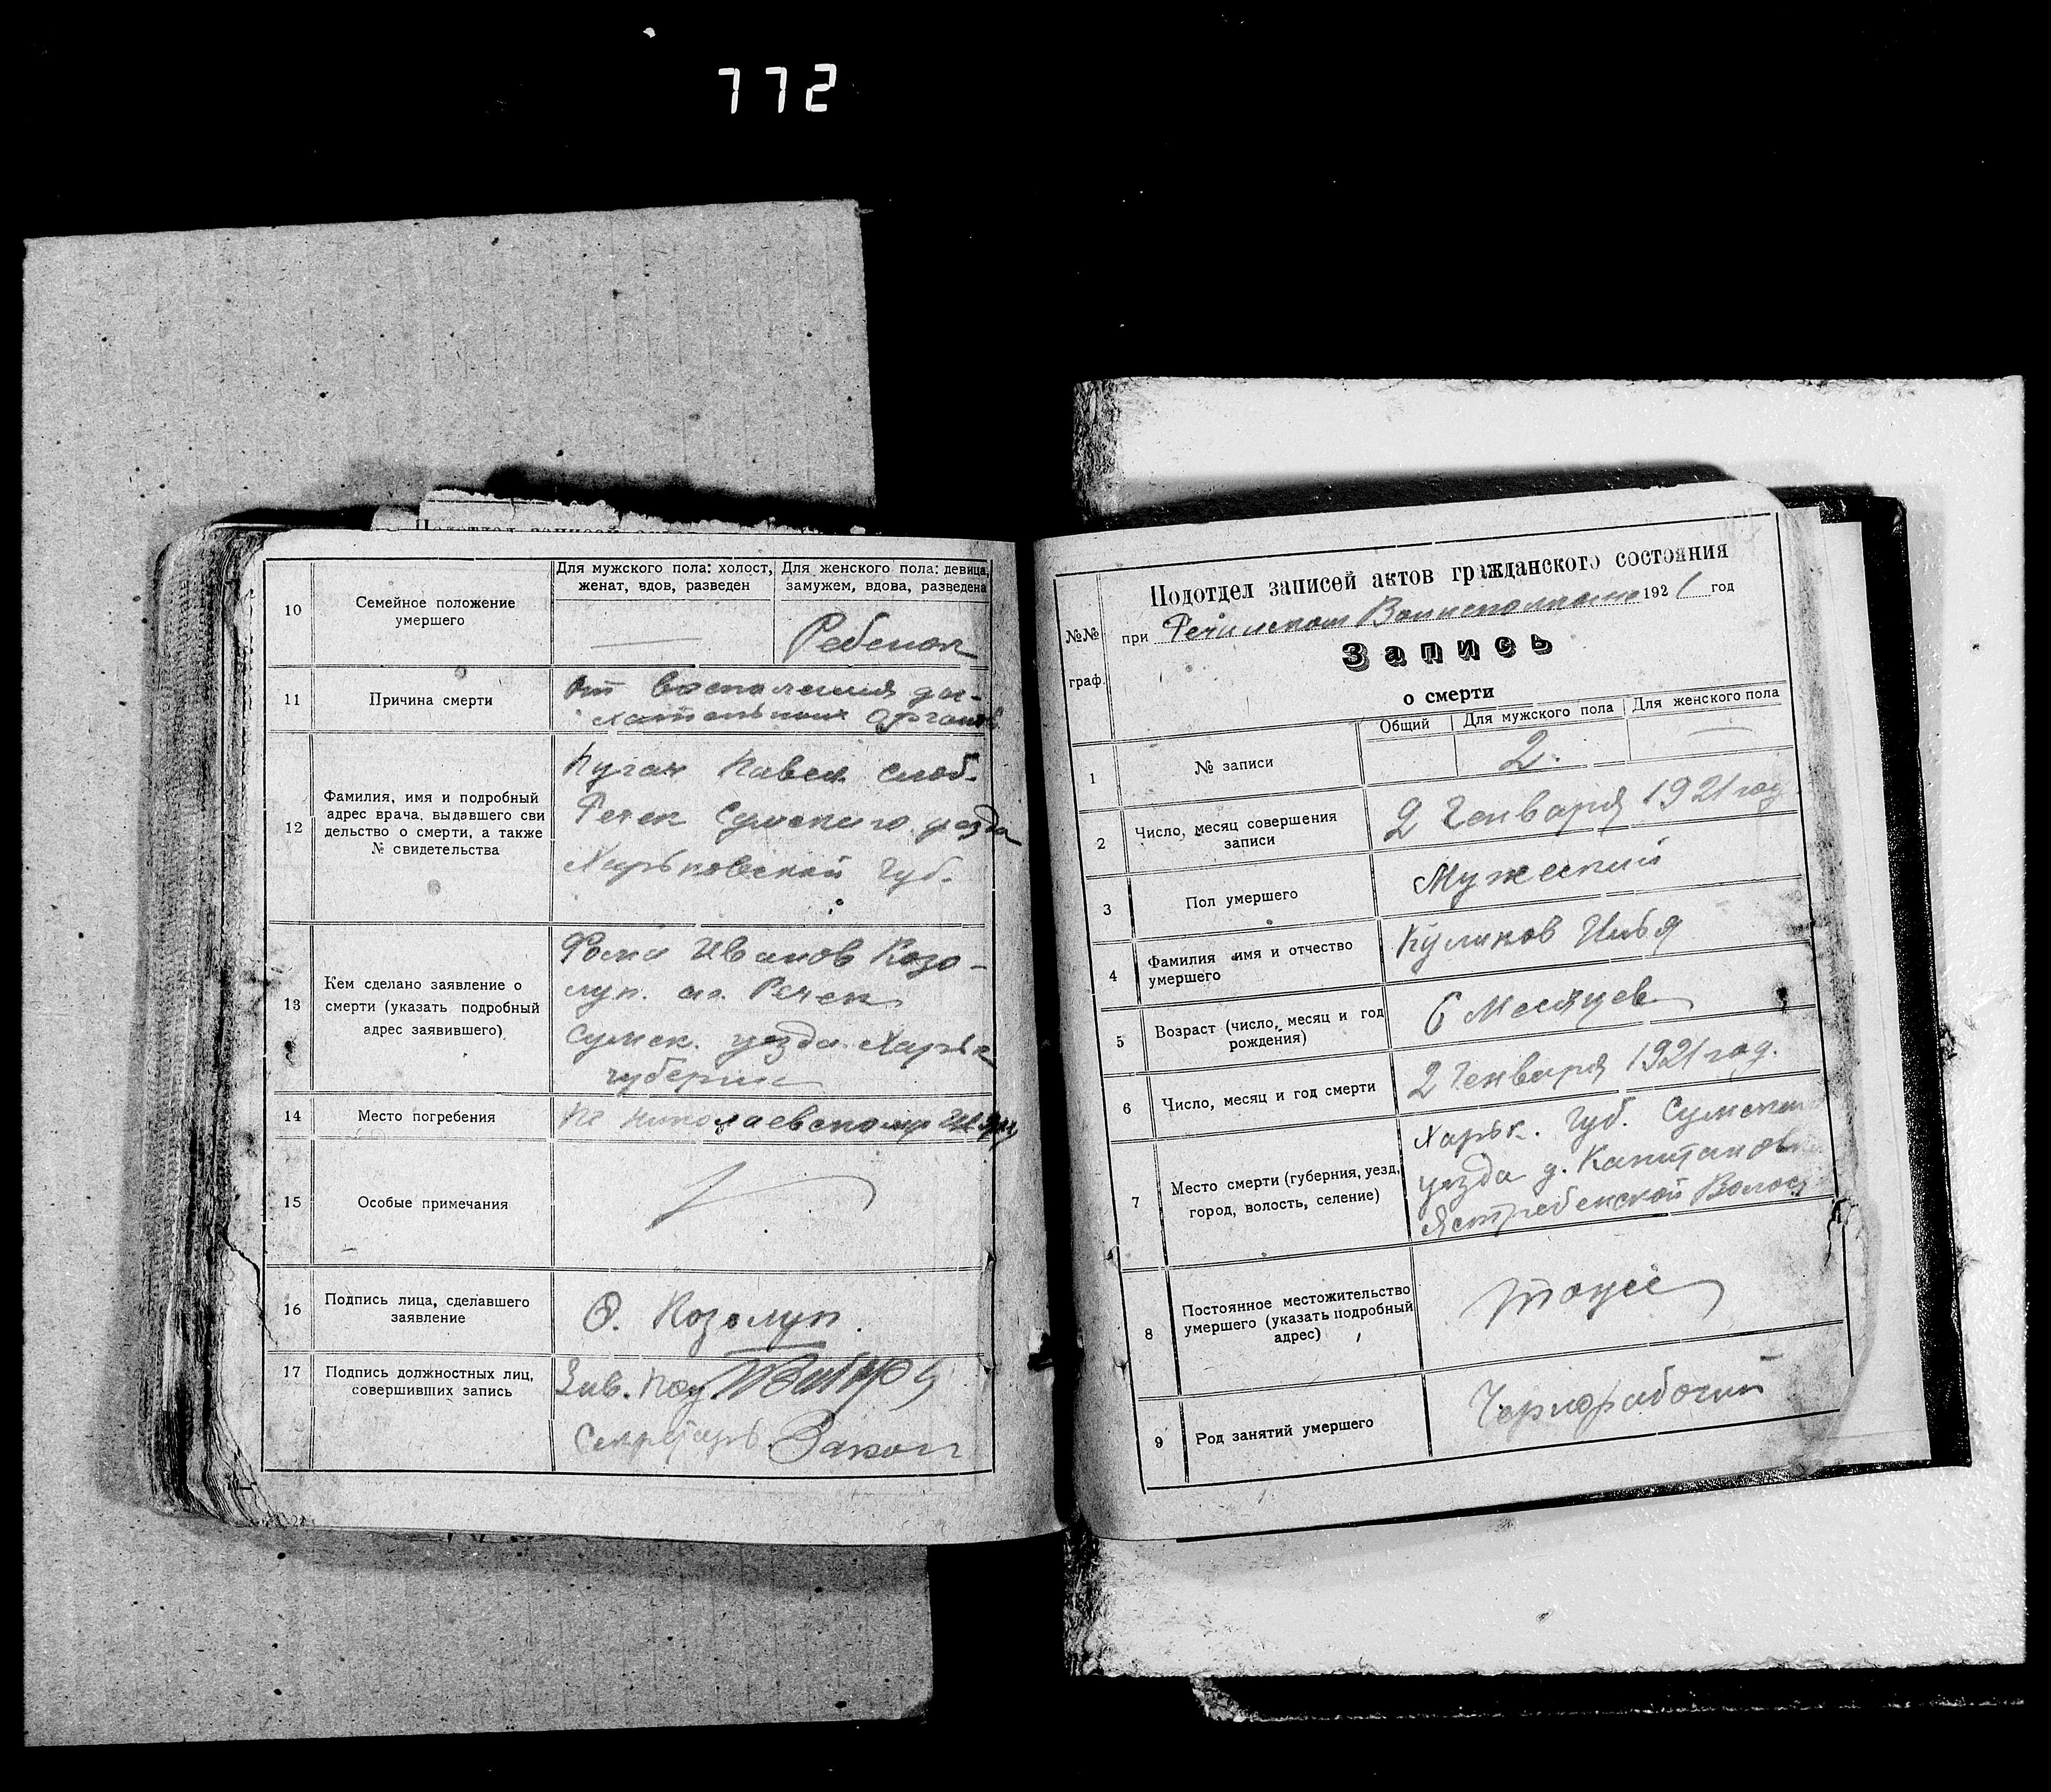 772
10
Семейное положение
умершего
Для мужского пола: холост,
женат, вдов, разведен
Для женского пола: девица,
замужем, вдова, разведена
Ребенок
11
Причина смерти
От воспаления ды-
хательных органов
12
Фамилия, имя и подробный
адрес врача, выдавшего сви
дельство о смерти, а также
№ свидетельства
Павел слоб.
Речек Сумского уезда
Харьковской Губ.
13
Кем сделано заявление о
смерти (указать подробный
адрес заявившего)
Фома Иванов Козо-
луп. сл. Речек
Сумск. уезда Харьк
губернии
14
Место погребения
Николаевскому
15
Особые примечания
16
Подпись лица, сделавшего
заявление
Ф. Козолуп.
17
Подпись должностных лиц,
совершивших запись
Зав. Под
Секретарь
№№
граф.
Подотдел записей актов гражданского состояния
при Речинском Волисполкоме 1921 год
Запись
о смерти
1
№ записи
Общий
Для мужского пола
Для женского пола
2.
2
Число, месяц совершения
записи
2 Генваря 1921 год
3
Пол умершего
Мужеский
4
Фамилия имя и отчество
умершего
Куликов Илья
5
Возраст (число, месяц и год
рождения)
6 Месяцев
6
Число, месяц и год смерти
2 Генваря 1921 год.
7
Место смерти (губерния, уезд,
город, волость, селение)
Харьк. Губ. Сумского
уезда д. Капитановк
Ястребенской Волос
8
Постоянное местожительство
умершего (указать подробный
адрес)
тоже
9
Род занятий умершего
Чернорабочий